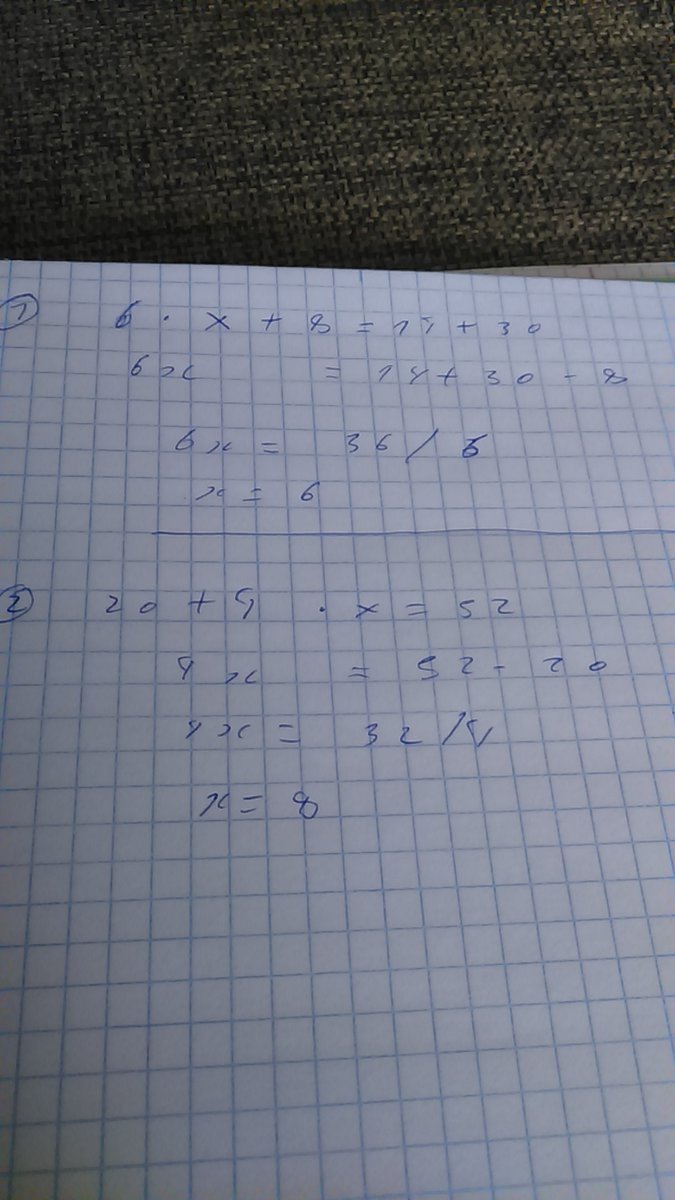 ① 6 · x + 8 = 14 + 30
6x = 14 + 30 - 8
6x = 36 / 6
x = 6
② 20 + 4 · x = 52
4x = 52 - 20
4x = 32 / 4
x = 8